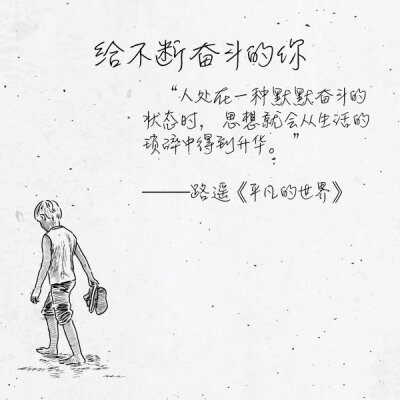 给不断奋斗的你
“人处在一种默默奋斗的
状态时，思想就会从生活的
琐碎中得到升华。”
——路遥《平凡的世界》